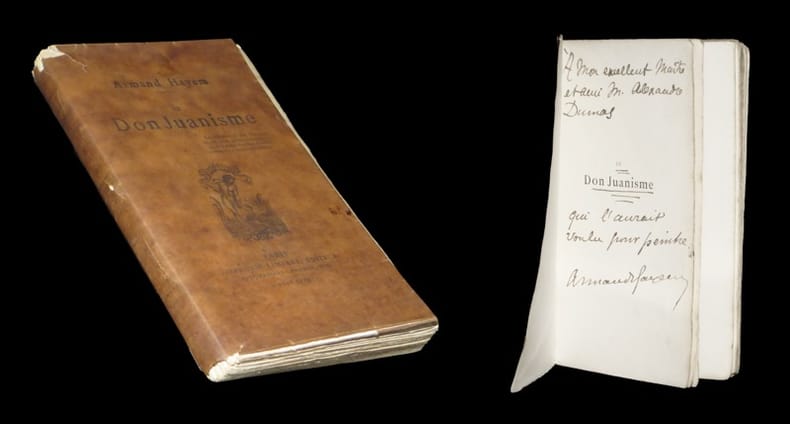 Armand Hayem
LE
Don Juanisme
PARIS
À Mon excellent Maître
et ami M. Alexandre
Dumas
LE
Don Juanisme
qui l'aurait
voulu pour peintre
Armand Hayem